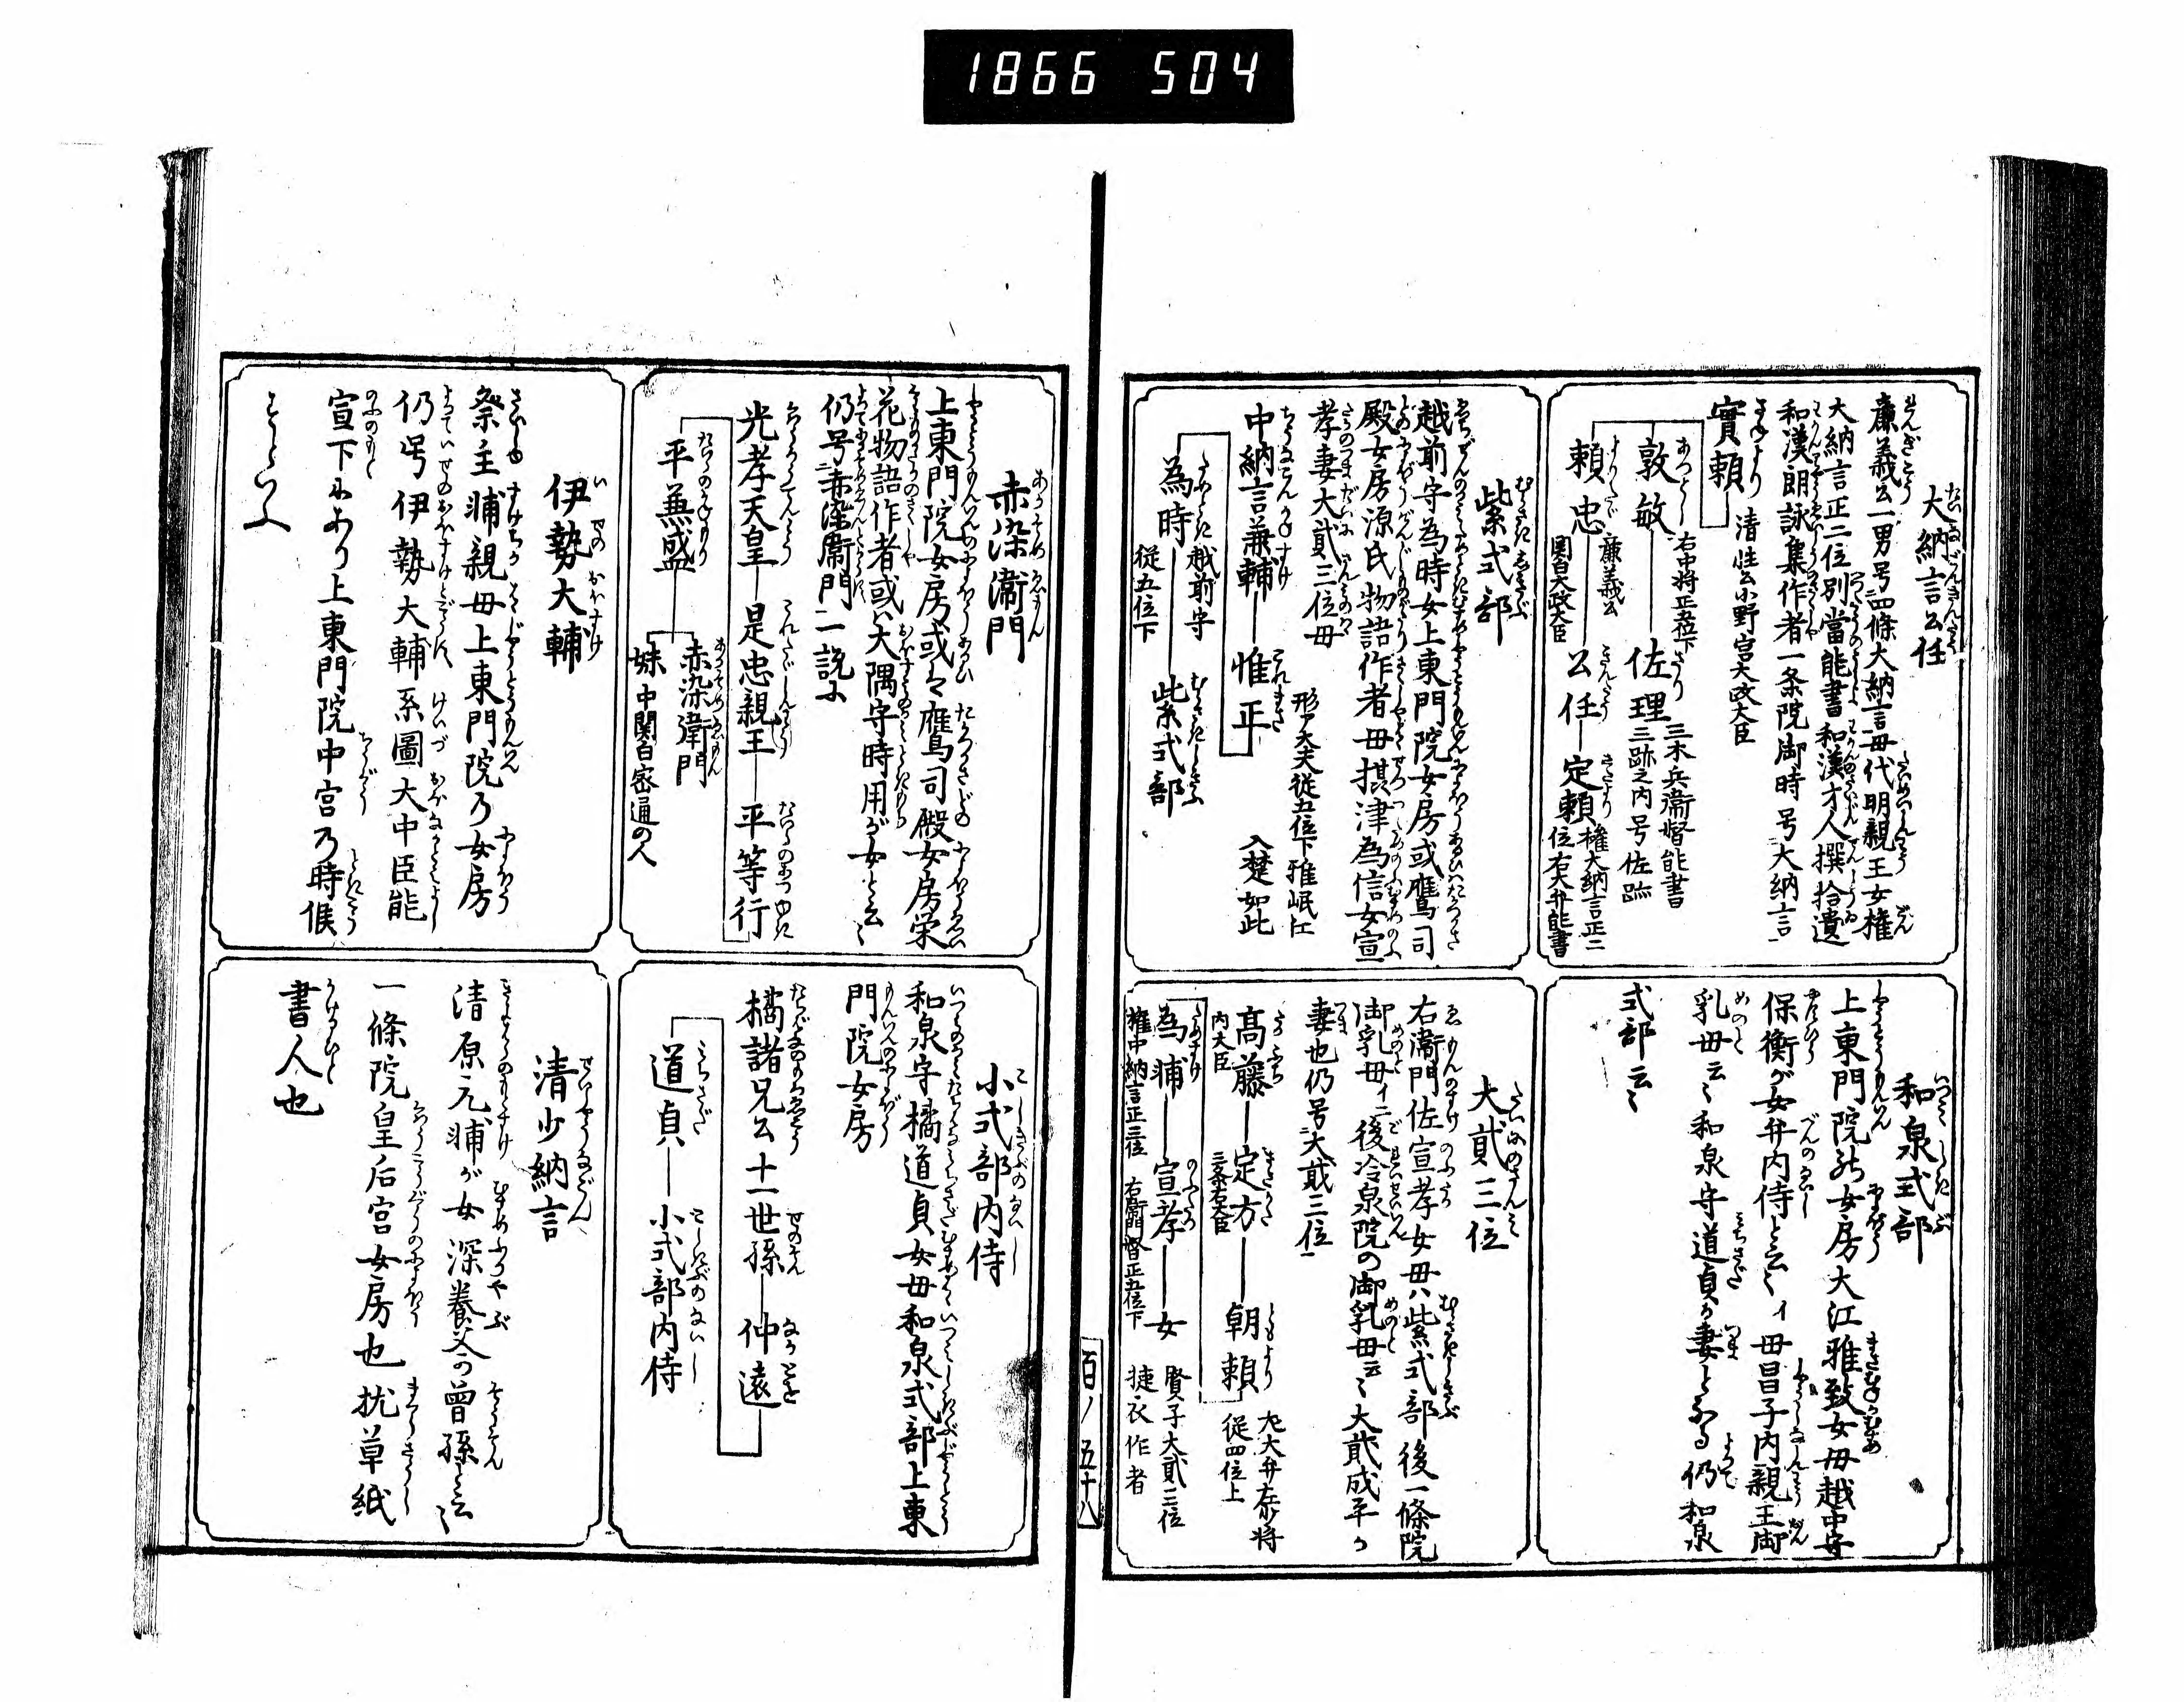 1866 504
大納言公任
廉義公一男号四條大納言母代明親王女権
大納言正二位別當能書和漢才人撰拾遺
和漢朗詠集作者一条院御時号大納言
實頼 清慎公小野宮太政大臣
敦敏 右中将正五位下 佐理 三木兵衞督能書 三跡之内号佐跡
頼忠 廉義公 関白太政大臣 公任 定頼 権大納言正二位右大弁能書
和泉式部
上東門院の女房大江雅致女母越中守
保衡が女弁内侍と云々イ母昌子内親王御
乳母云々和泉守道貞が妻となる仍和泉
式部云々
紫式部
越前守為時女上東門院女房或鷹司
殿女房源氏物語作者母摂津為信女宣
孝妻大貳三位母
中納言兼輔 惟正 刑ア大夫従五位下雅岷仁 入楚如此
為時 越前守 従五位下 紫式部
大貳三位
右衞門佐宣孝女母ハ紫式部後一條院
御乳母イニ後冷泉院の御乳母云々大貳成平が
妻也仍号大貳三位
高藤 内大臣 定方 三条右大臣 朝頼 左大弁左少将 従四位上
為輔 権中納言正三位 宣孝 右衞門督正五位下 女 賢子大貳三位 狭衣作者
百ノ五十八
赤染衞門
上東門院女房或は鷹司殿女房栄
花物語作者或ハ大隅守時用が女と云々
仍号赤染衞門二説に
光孝天皇 是忠親王 平等行
平兼盛 赤染衞門
妹 中関白密通の人
小式部内侍
和泉守橘道貞女母和泉式部上東
門院女房
橘諸兄公十一世孫 仲遠
道貞 小式部内侍
伊勢大輔
祭主輔親母上東門院の女房
仍号伊勢大輔系圖大中臣能
宣下にあり上東門院中宮の時候
すといふ
清少納言
清原元輔が女深養父の曽孫と云々
一條院皇后宮女房也枕草紙
書人也